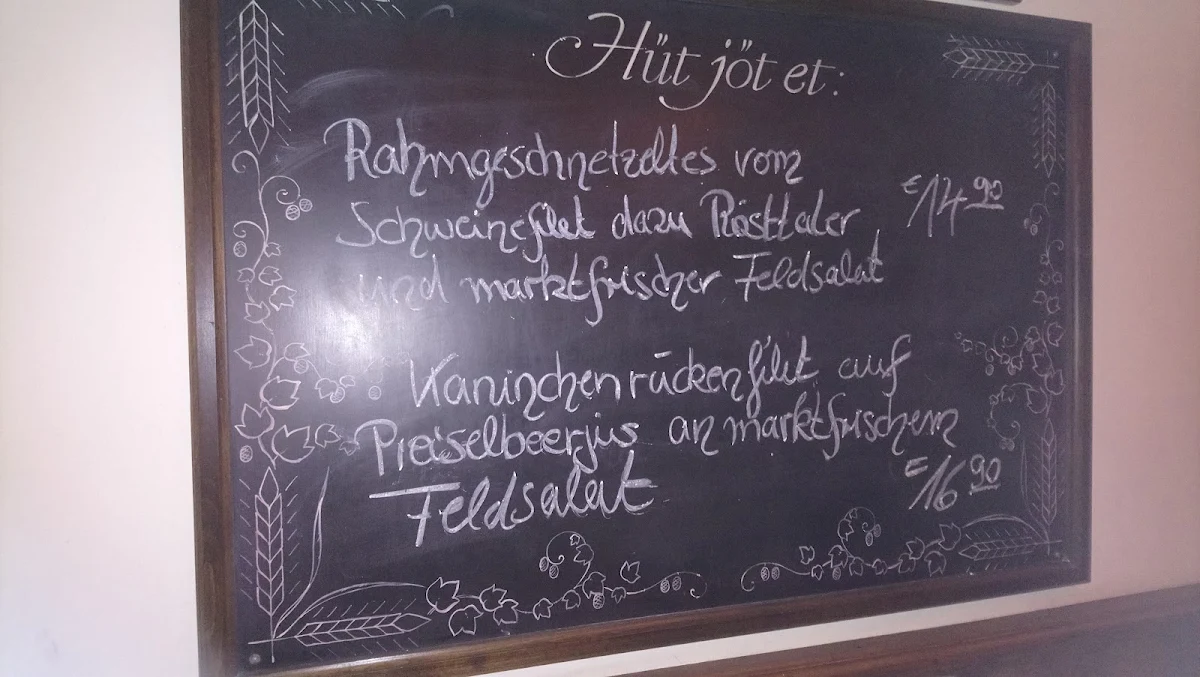 Hüt jöt et:
Rahmgeschnetzeltes vom
Schweinefilet dazu Rösttaler
€14 90
und marktfrischer Feldsalat
Kaninchenrückenfilet auf
Preiselbeerjus an marktfrischem
Feldsalat
€16 90